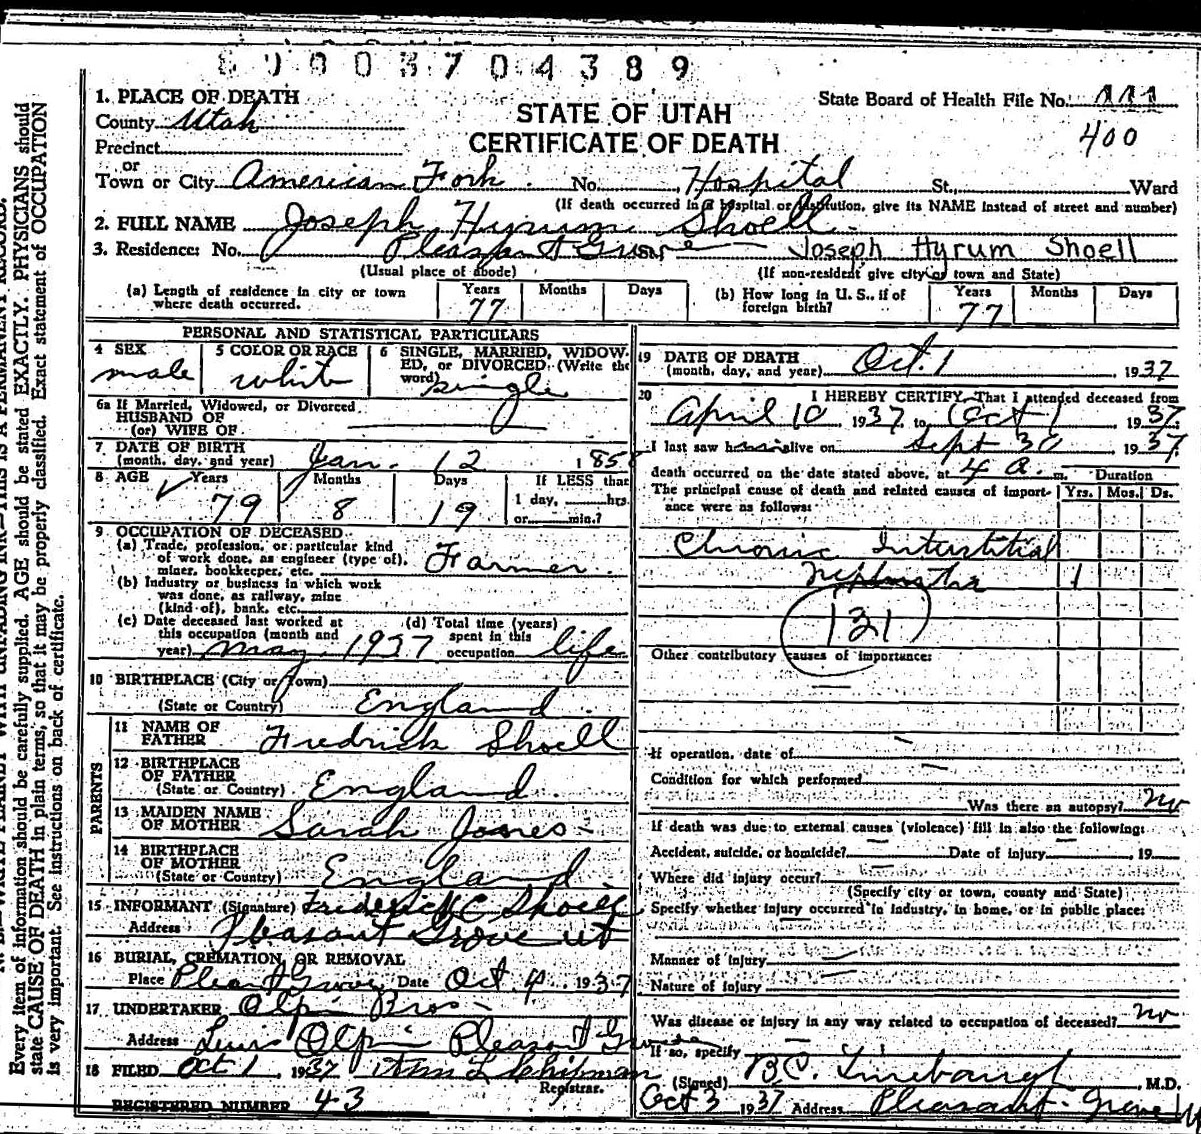 8 0 0 0 3 7 0 4 3 8 9
1. PLACE OF DEATH
County Utah
Precinct
or
Town or City American Fork No. Hospital St., Ward
STATE OF UTAH
CERTIFICATE OF DEATH
State Board of Health File No. 111
400
(If death occurred in a hospital or institution, give its NAME instead of street and number)
2. FULL NAME Joseph Hyrum Shoell
3. Residence: No. Pleasant Grove Joseph Hyrum Shoell
(Usual place of abode) (If non-resident give city or town and State)
(a) Length of residence in city or town where death occurred. Years 77 Months Days
(b) How long in U. S., if of foreign birth? Years 77 Months Days
PERSONAL AND STATISTICAL PARTICULARS
4 SEX male
5 COLOR OR RACE white
6 SINGLE, MARRIED, WIDOW-
ED, or DIVORCED. (Write the
word) single
6a If Married, Widowed, or Divorced
HUSBAND OF
(or) WIFE OF
7 DATE OF BIRTH
(month, day, and year) Jan. 12 1858
8 AGE Years 79 Months 8 Days 19
If LESS than
1 day, hrs.
or min.?
9 OCCUPATION OF DECEASED
(a) Trade, profession, or particular kind
of work done, as engineer (type of),
miner, bookkeeper, etc. Farmer.
(b) Industry or business in which work
was done, as railway, mine
(kind of), bank, etc.
(c) Date deceased last worked at
this occupation (month and
year) May 1937
(d) Total time (years)
spent in this
occupation life
10 BIRTHPLACE (City or Town)
(State or Country) England.
PARENTS
11 NAME OF
FATHER Fredrick Shoell
12 BIRTHPLACE
OF FATHER
(State or Country) England.
13 MAIDEN NAME
OF MOTHER Sarah Jones
14 BIRTHPLACE
OF MOTHER
(State or Country) England.
15 INFORMANT (Signature) Frederick C Shoell
Address Pleasant Grove ut
16 BURIAL, CREMATION, OR REMOVAL
Place Pleasant Grove Date Oct 4 1937
17 UNDERTAKER Olpin Bros
Address Olpin Pleasant Grove
18 FILED Oct 1, 1937
Registrar.
REGISTERED NUMBER 43
19 DATE OF DEATH
(month, day, and year) Oct. 1, 1937
20 I HEREBY CERTIFY, That I attended deceased from
April 10 1937 to Oct 1 1937.
I last saw him alive on Sept 30 1937.
death occurred on the date stated above, at 4 a. m. Duration
The principal cause of death and related causes of import- Yrs. Mos. Ds.
ance were as follows:
Chronic Interstitial
Nephritis 1
131
Other contributory causes of importance:
If operation, date of
Condition for which performed
Was there an autopsy? no
If death was due to external causes (violence) fill in also the following:
Accident, suicide, or homicide? Date of injury , 19
Where did injury occur?
(Specify city or town, county and State)
Specify whether injury occurred in industry, in home, or in public place:
Manner of injury
Nature of injury
Was disease or injury in any way related to occupation of deceased? no
If so, specify
(Signed) B.C. Linebaugh, M.D.
Oct 3 1937 Address Pleasant Grove
Every item of information should be carefully supplied. AGE should be stated EXACTLY. PHYSICIANS should
state CAUSE OF DEATH in plain terms, so that it may be properly classified. Exact statement of OCCUPATION
is very important. See instructions on back of certificate.